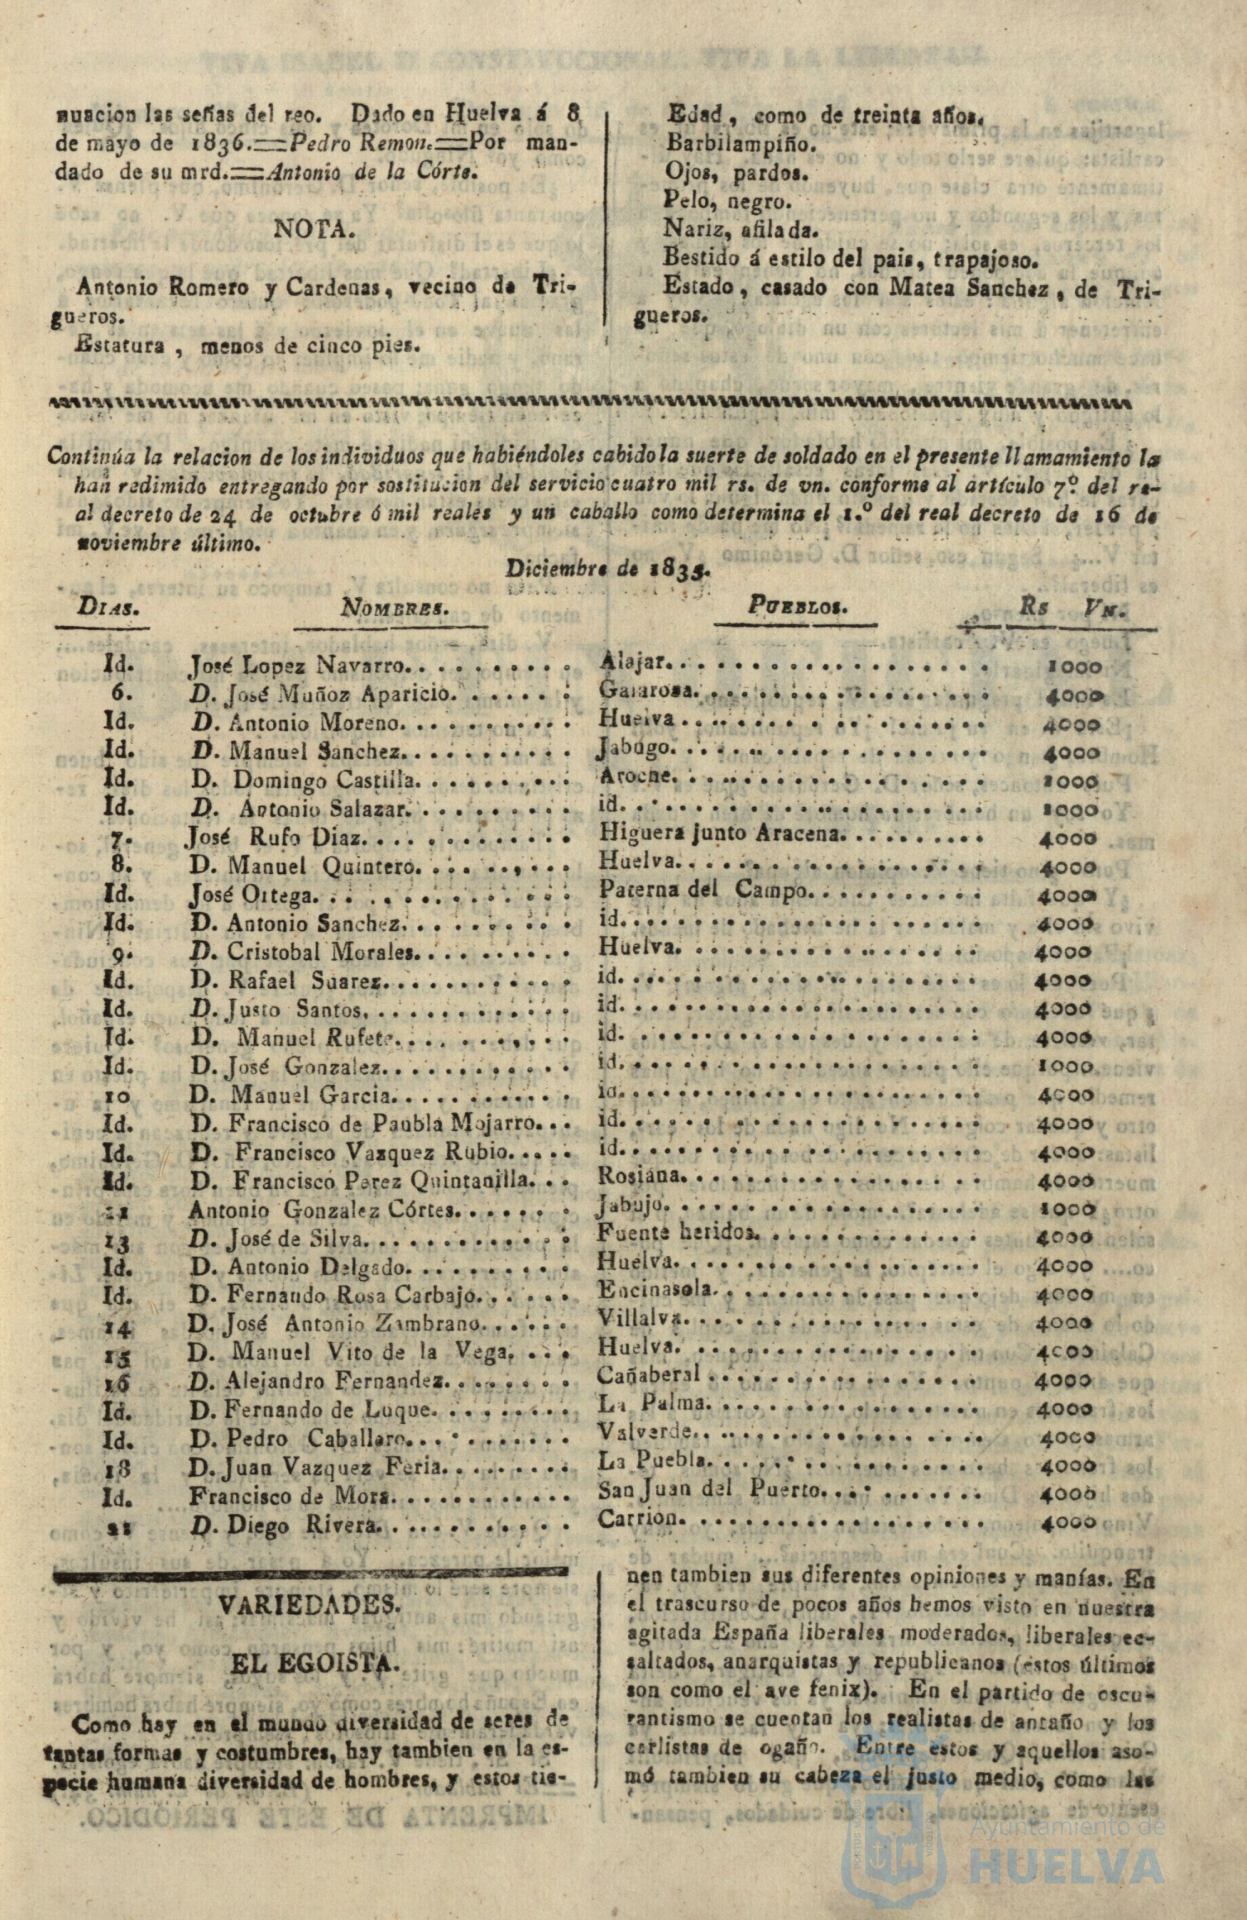 nuacion las señas del reo. Dado en Huelva á 8
de mayo de 1836.=Pedro Remon.=Por man-
dado de su mrd.=Antonio de la Córte.
NOTA.
Antonio Romero y Cardenas, vecino de Tri-
gueros.
Estatura, menos de cinco pies.
Edad, como de treinta años.
Barbilampiño.
Ojos, pardos.
Pelo, negro.
Nariz, afilada.
Bestido á estilo del pais, trapajoso.
Estado, casado con Matea Sanchez, de Tri-
gueros.
Continúa la relacion de los individuos que habiéndoles cabido la suerte de soldado en el presente llamamiento la
han redimido entregando por sostitucion del servicio cuatro mil rs. de vn. conforme al artículo 7º. del re-
al decreto de 24 de octubre ó mil reales y un caballo como determina el 1.º del real decreto de 16 de
noviembre último.
Diciembre de 1835.
DIAS. NOMBRES. PUEBLOS. RS VN.
Id. José Lopez Navarro. Alajar. 1000
6. D. José Muñoz Aparicio. Galarosa. 4000
Id. D. Antonio Moreno. Huelva 4000
Id. D. Manuel Sanchez. Jabugo. 4000
Id. D. Domingo Castilla. Aroche. 1000
Id. D. Antonio Salazar. id. 1000
7. José Rufo Diaz. Higuera junto Aracena. 4000
8. D. Manuel Quintero. Huelva. 4000
Id. José Ortega. Paterna del Campo. 4000
Id. D. Antonio Sanchez. id. 4000
9. D. Cristobal Morales. Huelva. 4000
Id. D. Rafael Suarez. id. 4000
Id. D. Justo Santos. id. 4000
Id. D. Manuel Rufete. id. 4000
Id. D. José Gonzalez. id. 1000
10 D. Manuel Garcia. id. 4000
Id. D. Francisco de Paubla Mojarro. id. 4000
Id. D. Francisco Vazquez Rubio. id. 4000
Id. D. Francisco Perez Quintanilla. Rosiana. 4000
11 Antonio Gonzalez Córtes. Jabujo. 1000
13 D. José de Silva. Fuente heridos. 4000
Id. D. Antonio Delgado. Huelva. 4000
Id. D. Fernando Rosa Carbajo. Encinasola. 4000
14 D. José Antonio Zambrano. Villalva. 4000
15 D. Manuel Vito de la Vega. Huelva. 4000
16 D. Alejandro Fernandez. Cañaberal 4000
Id. D. Fernando de Luque. La Palma. 4000
Id. D. Pedro Caballero. Valverde. 4000
18 D. Juan Vazquez Feria. La Puebla. 4000
Id. Francisco de Mora. San Juan del Puerto. 4000
21 D. Diego Rivera. Carrion. 4000
VARIEDADES.
EL EGOISTA.
Como hay en el mundo diversidad de seres de
tantas formas y costumbres, hay tambien en la es-
pecie humana diversidad de hombres, y estos tie-
nen tambien sus diferentes opiniones y manías. En
el trascurso de pocos años hemos visto en nuestra
agitada España liberales moderados, liberales ec-
saltados, anarquistas y republicanos (éstos últimos
son como el ave fenix). En el partido de oscu-
rantismo se cuentan los realistas de antaño y los
carlistas de ogaño. Entre estos y aquellos aso-
mó tambien su cabeza el justo medio, como las
Ayuntamiento de
HUELVA